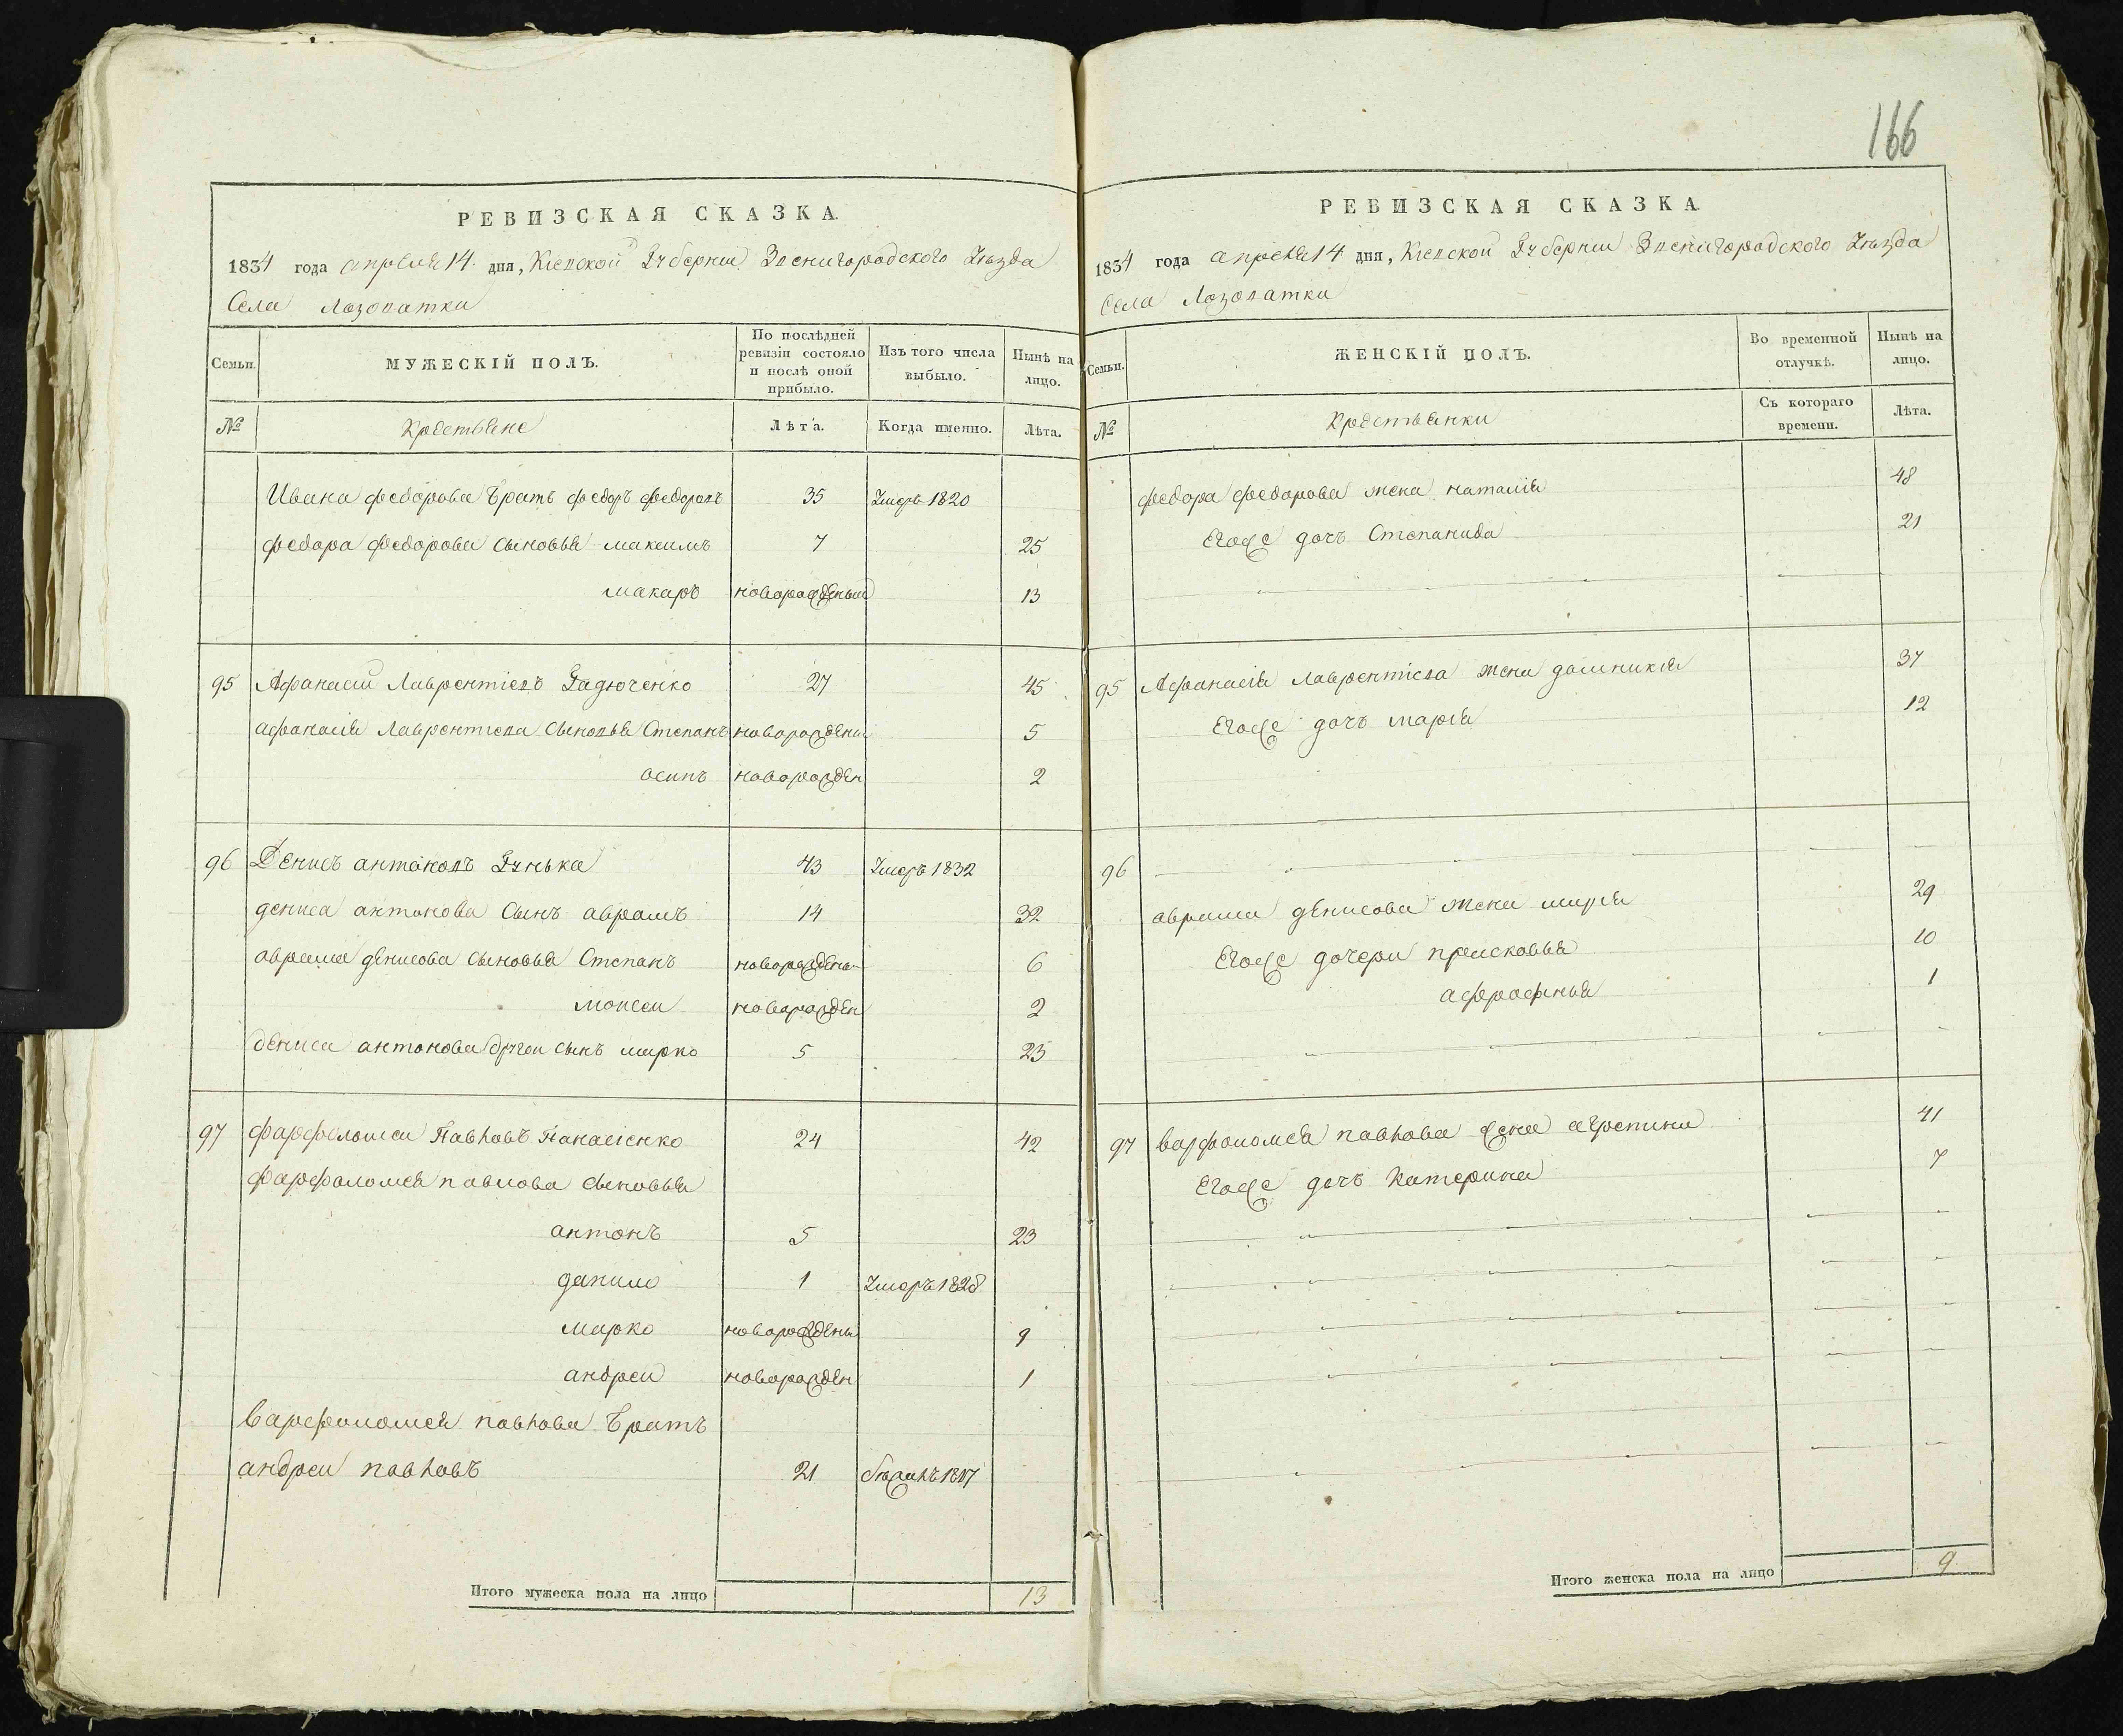 166
РЕВИЗСКАЯ СКАЗКА.
1834 года апреля 14 дня, Киевской Губернии Звенигородского Уезда
Села Лозоватки
Семьи.
МУЖЕСКІЙ ПОЛЪ.
По послѣдней ревизіи состояло и послѣ оной прибыло.
Изъ того числа выбыло.
Нынѣ на лицо.
№ Крестьяне Лѣта. Когда именно. Лѣта.
Ивана федорова братъ федоръ федоровъ 35 Умеръ 1820
федора федорова сыновья максимъ 7 25
макаръ новорожденый 13
95 Афанасии Лаврентиевъ Гадюченко 27 45
афанасия Лаврентиева сыновья Степанъ новорождены 5
осипъ новорожден 2
96 Денисъ антоновъ Гунька 43 Умеръ 1832
дениса антонова сынъ аврамъ 14 32
аврама денисова сыновья Степанъ новорождены 6
моисеи новорожден 2
дениса антонова другои сынъ марко 5 23
97 фарфоломеи Павловъ Панасіенко 24 42
фарфоломея павлова сыновья
антонъ 5 23
данило 1 Умеръ 1828
марко новорождены 9
андреи новорожден 1
варфоломея павлова братъ
андреи павловъ 21 бежалъ 1817
Итого мужеска пола на лицо 13
РЕВИЗСКАЯ СКАЗКА.
1834 года апреля 14 дня, Киевской Губернии Звенигородского Уезда
Села Лозоватки
Семьи.
ЖЕНСКІЙ ПОЛЪ.
Во временной отлучкѣ.
Нынѣ на лицо.
№ Крестьянки Съ котораго времени. Лѣта.
федора федорова жена наталия 48
Егоже дочъ Степанида 21
95 Афанасія Лаврентіева жена домникия 37
Егоже дочъ мария 12
96
аврама денисова жена мария 29
Егоже дочери присковья 10
афрофинья 1
97 варфоломея павлова жена агрепина 41
Егоже дочъ Катерина 7
Итого женска пола на лицо 9